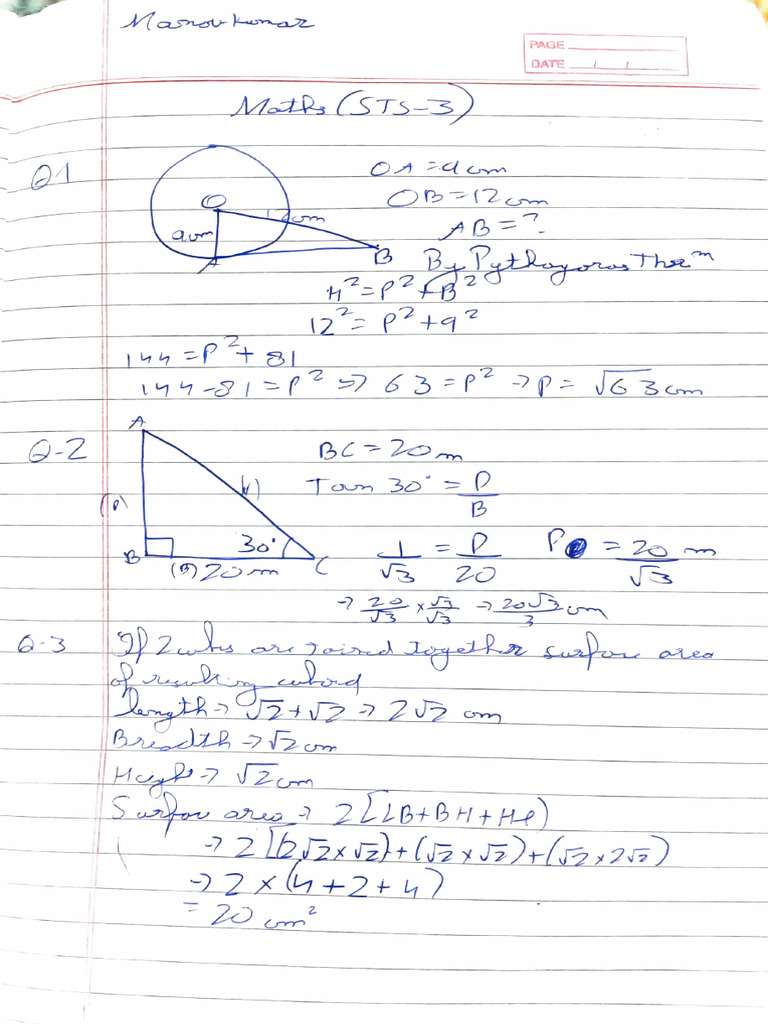 Manav kumar
PAGE
DATE / /
Maths (STS-3)
Q1
O
9cm
12cm
A
B
OA = 9cm
OB = 12cm
AB = ?
By Pythagoras Theᵐ
H² = P² + B²
12² = P² + 9²
144 = P² + 81
144 - 81 = P² => 63 = P² → P = √63 cm
Q-2
A
(P)
(H)
B
(B) 20m
30°
C
BC = 20m
Tan 30° = P/B
1/√3 = P/20
P = 20/√3 m
→ 20/√3 × √3/√3 → 20√3/3 cm
Q-3 If 2 cubes are joined together surface area
of resulting cuboid
length → √2 + √2 → 2√2 cm
Breadth → √2 cm
Height → √2 cm
Surface area → 2[LB + BH + Hl)
→ 2[(2√2 × √2) + (√2 × √2) + (√2 × 2√2)
→ 2 × (4 + 2 + 4)
= 20 cm²